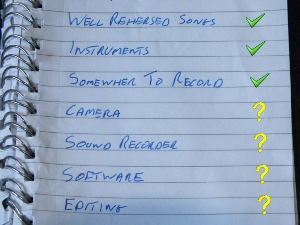 WELL REHERSED SONGS ✓
INSTRUMENTS ✓
SOMEWHER TO RECORD ✓
CAMERA ?
SOUND RECORDER ?
SOFTWARE ?
EDITING ?